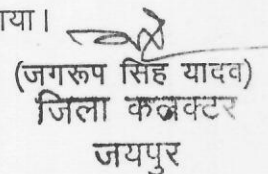 या।
(जगरूप सिंह यादव)
जिला कलक्टर
जयपुर